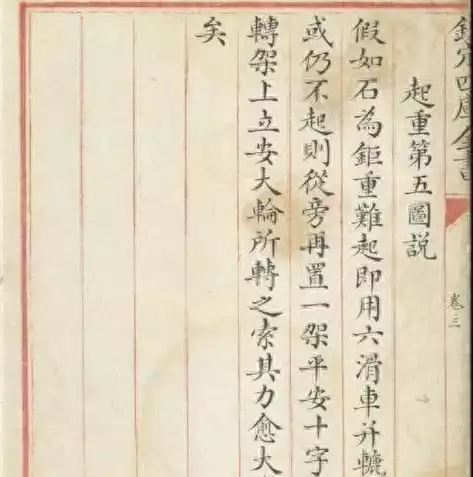 欽定四庫全書
卷三
起重第五圖説
假如石為鉅重難起即用六滑車并轆
或仍不起則從旁再置一架平安十字
轉架上立安大輪所轉之索其力愈大
矣